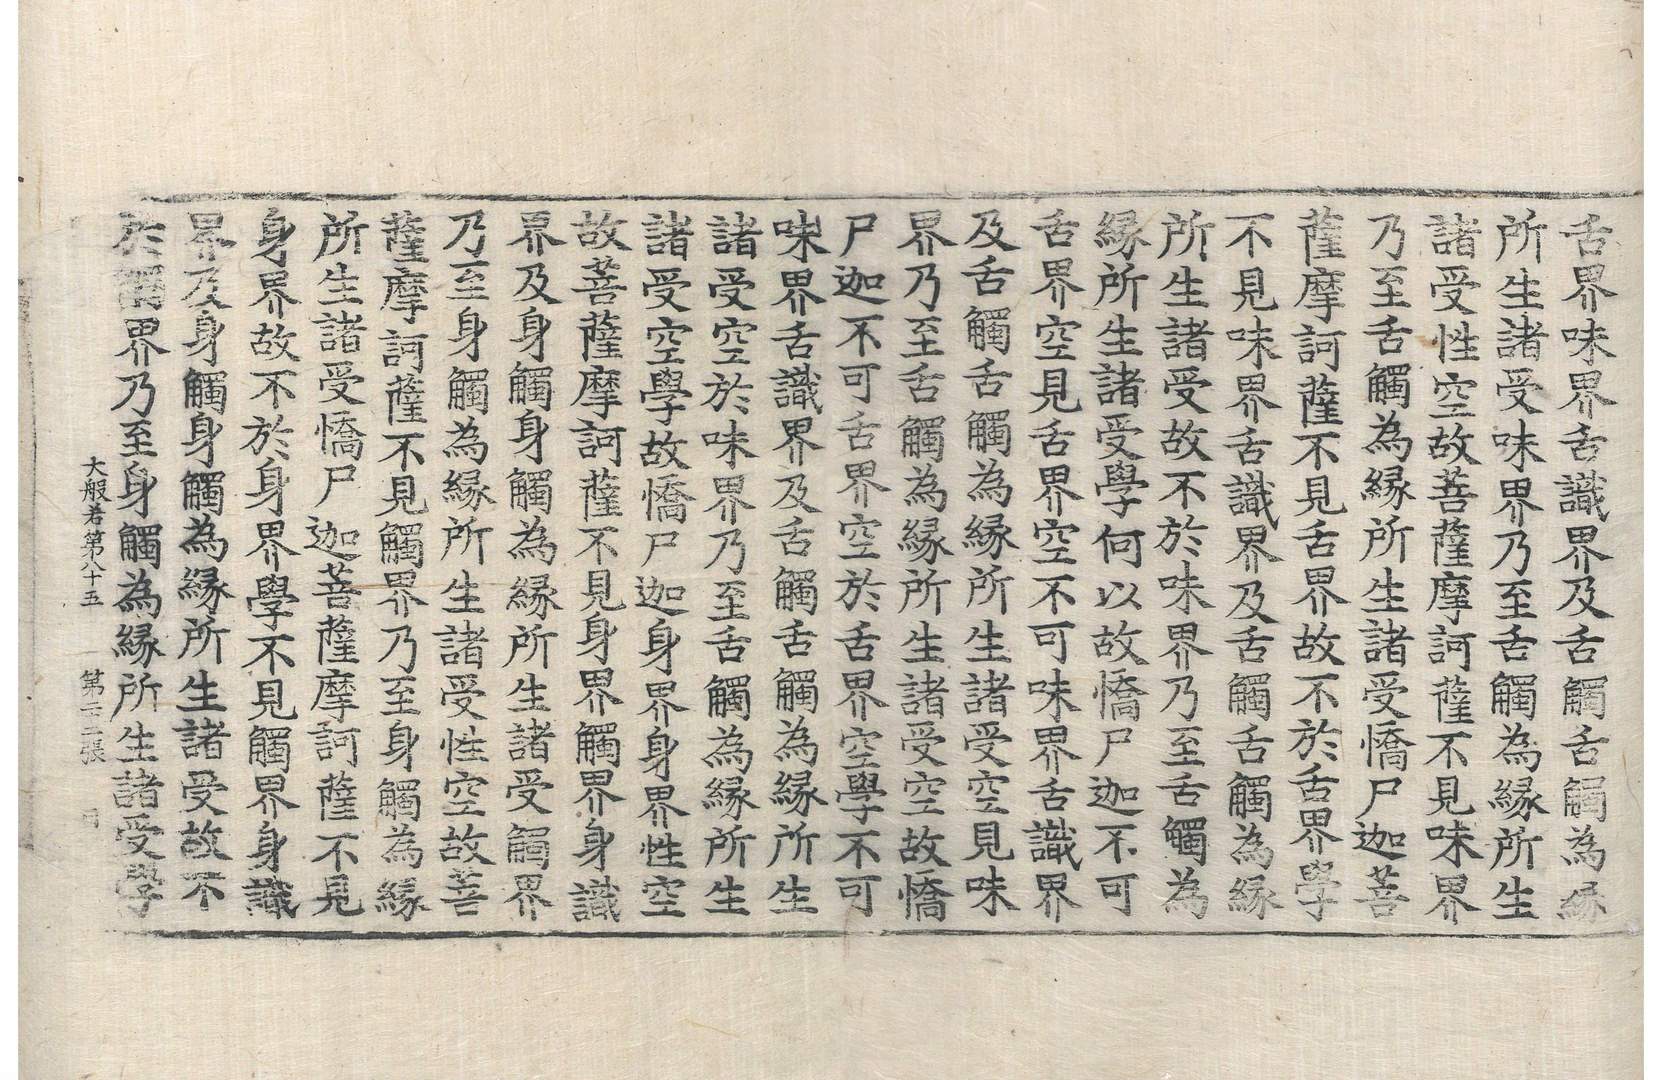 舌界味界舌識界及舌觸舌觸為緣
所生諸受味界乃至舌觸為緣所生
諸受性空故菩薩摩訶薩不見味界
乃至舌觸為緣所生諸受憍尸迦菩
薩摩訶薩不見舌界故不於舌界學
不見味界舌識界及舌觸舌觸為緣
所生諸受故不於味界乃至舌觸為
緣所生諸受學何以故憍尸迦不可
舌界空見舌界空不可味界舌識界
及舌觸舌觸為緣所生諸受空見味
界乃至舌觸為緣所生諸受空故憍
尸迦不可舌界空於舌界空學不可
味界舌識界及舌觸舌觸為緣所生
諸受空於味界乃至舌觸為緣所生
諸受空學故憍尸迦身界身界性空
故菩薩摩訶薩不見身界觸界身識
界及身觸身觸為緣所生諸受觸界
乃至身觸為緣所生諸受性空故菩
薩摩訶薩不見觸界乃至身觸為緣
所生諸受憍尸迦菩薩摩訶薩不見
身界故不於身界學不見觸界身識
界及身觸身觸為緣所生諸受故不
於觸界乃至身觸為緣所生諸受學
大般若第八十五 第 張